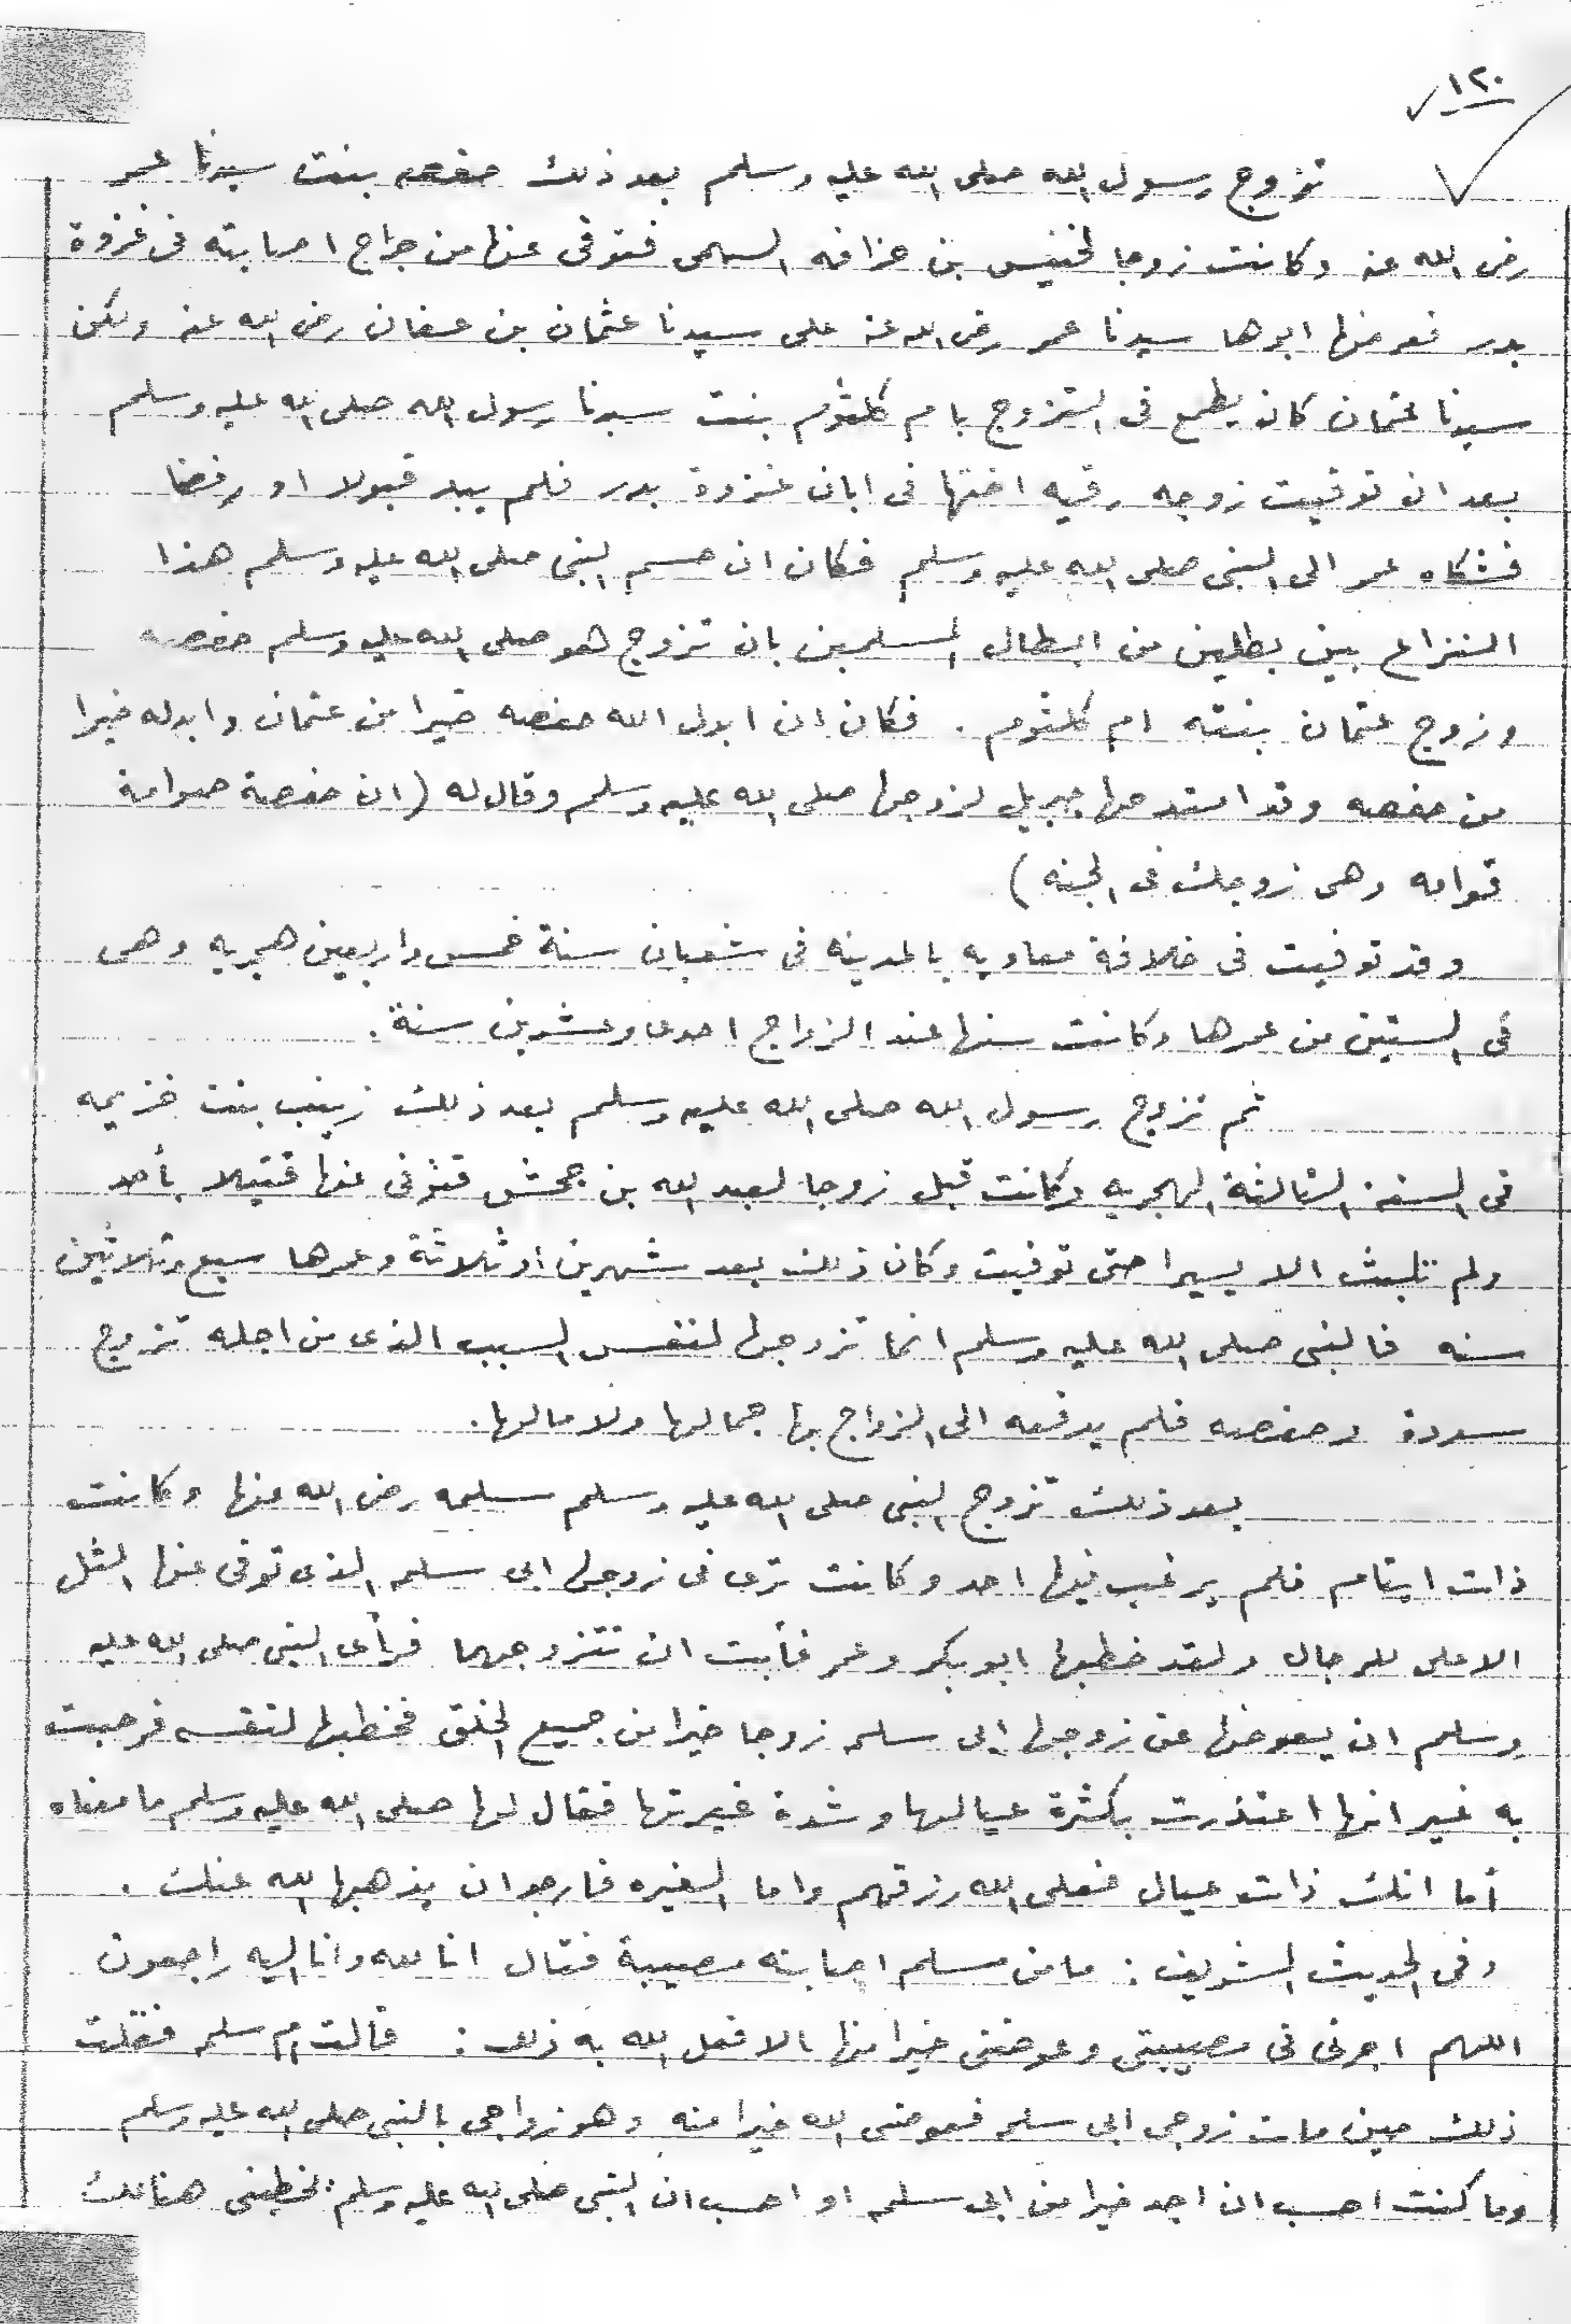 ١٢٠
تزوج رسول الله صلى الله عليه وسلم بعد ذلك حفصه بنت سيدنا عمر
رضى الله عنه وكانت زوجا لخنيس بن حزافه السهمى فتوفى عنها من جراح اصابته فى غزوة
بدر فعرضها ابوها سيدنا عمر رضى الله عنه على سيدنا عثمان بن عفان رضى الله عنه ولكن
سيدنا عثمان كان يطمع فى التزوج بام كلثوم بنت سيدنا رسول الله صلى الله عليه وسلم
بعد ان توفيت زوجه رقيه اختها فى ابان غزوة بدر فلم يبد قبولا او رفضا
فشكاه عمر الى النبى صلى الله عليه وسلم فكان ان حسم النبى صلى الله عليه وسلم هذا
النزاع بين بطلين من ابطال المسلمين بان تزوج هو صلى الله عليه وسلم حفصه
وزوج عثمان بنته ام كلثوم . فكان ان ابدل الله حفصه خيرا من عثمان وابدله خيرا
من حفصه وقد امتدحها جبريل لزوجها صلى الله عليه وسلم وقال له (ان حفصة صوامة
قوامه وهى زوجك فى الجنه)
وقد توفيت فى خلافة معاويه بالمدينه فى شعبان سنة خمس واربعين هجريه وهى
فى الستين من عمرها وكانت سنها عند الزواج احدى وعشرين سنة .
ثم تزوج رسول الله صلى الله عليه وسلم بعد ذلك زينب بنت خزيمه
فى السنة الثالثة الهجريه وكانت قبل زوجا لعبد الله بن جحش فتوفى عنها قتيلا بأحد
ولم تلبث الا يسيرا حتى توفيت وكان ذلك بعد شهرين او ثلاثة وعمرها سبع وثلاثين
سنه فالنبى صلى الله عليه وسلم انما تزوجها لنفس السبب الذى من اجله تزوج
سودة وحفصه فلم يدفعه الى الزواج بها جمالها ولا مالها .
بعد ذلك تزوج النبى صلى الله عليه وسلم سلمه رضى الله عنها وكانت
ذات ايتام فلم يرغب فيها احد وكانت ترى فى زوجها ابى سلمه الذى توفى عنها المثل
الاعلى للرجال ولقد خطبها ابوبكر وعمر فأبت ان تتزوجهما فرأى النبى صلى الله عليه
وسلم ان يعوضها عن زوجها ابى سلمه زوجا خيرا من جميع الخلق فخطبها لنفسه فرحبت
به غير انها اعتذرت بكثرة عيالها وشدة غيرتها فقال لها صلى الله عليه وسلم ما معناه
أما انك ذات عيال فعلى الله رزقهم واما الغيره فارجو ان يذهبها الله عنك .
وفى الحديث الشريف : ما من مسلم اصابته مصيبة فقال انا لله وانا اليه راجعون
اللهم اجرنى فى مصيبتى وعوضنى خيرا منها الا فعل الله به ذلك : قالت ام سلمه فقلت
ذلك حين مات زوجى ابى سلمه فعوضنى الله خيرا منه وهو زواجى بالنبى صلى الله عليه وسلم
وما كنت احسب ان اجد خيرا من ابى سلمه او احسب ان النبى صلى الله عليه وسلم يخطبنى هنالك